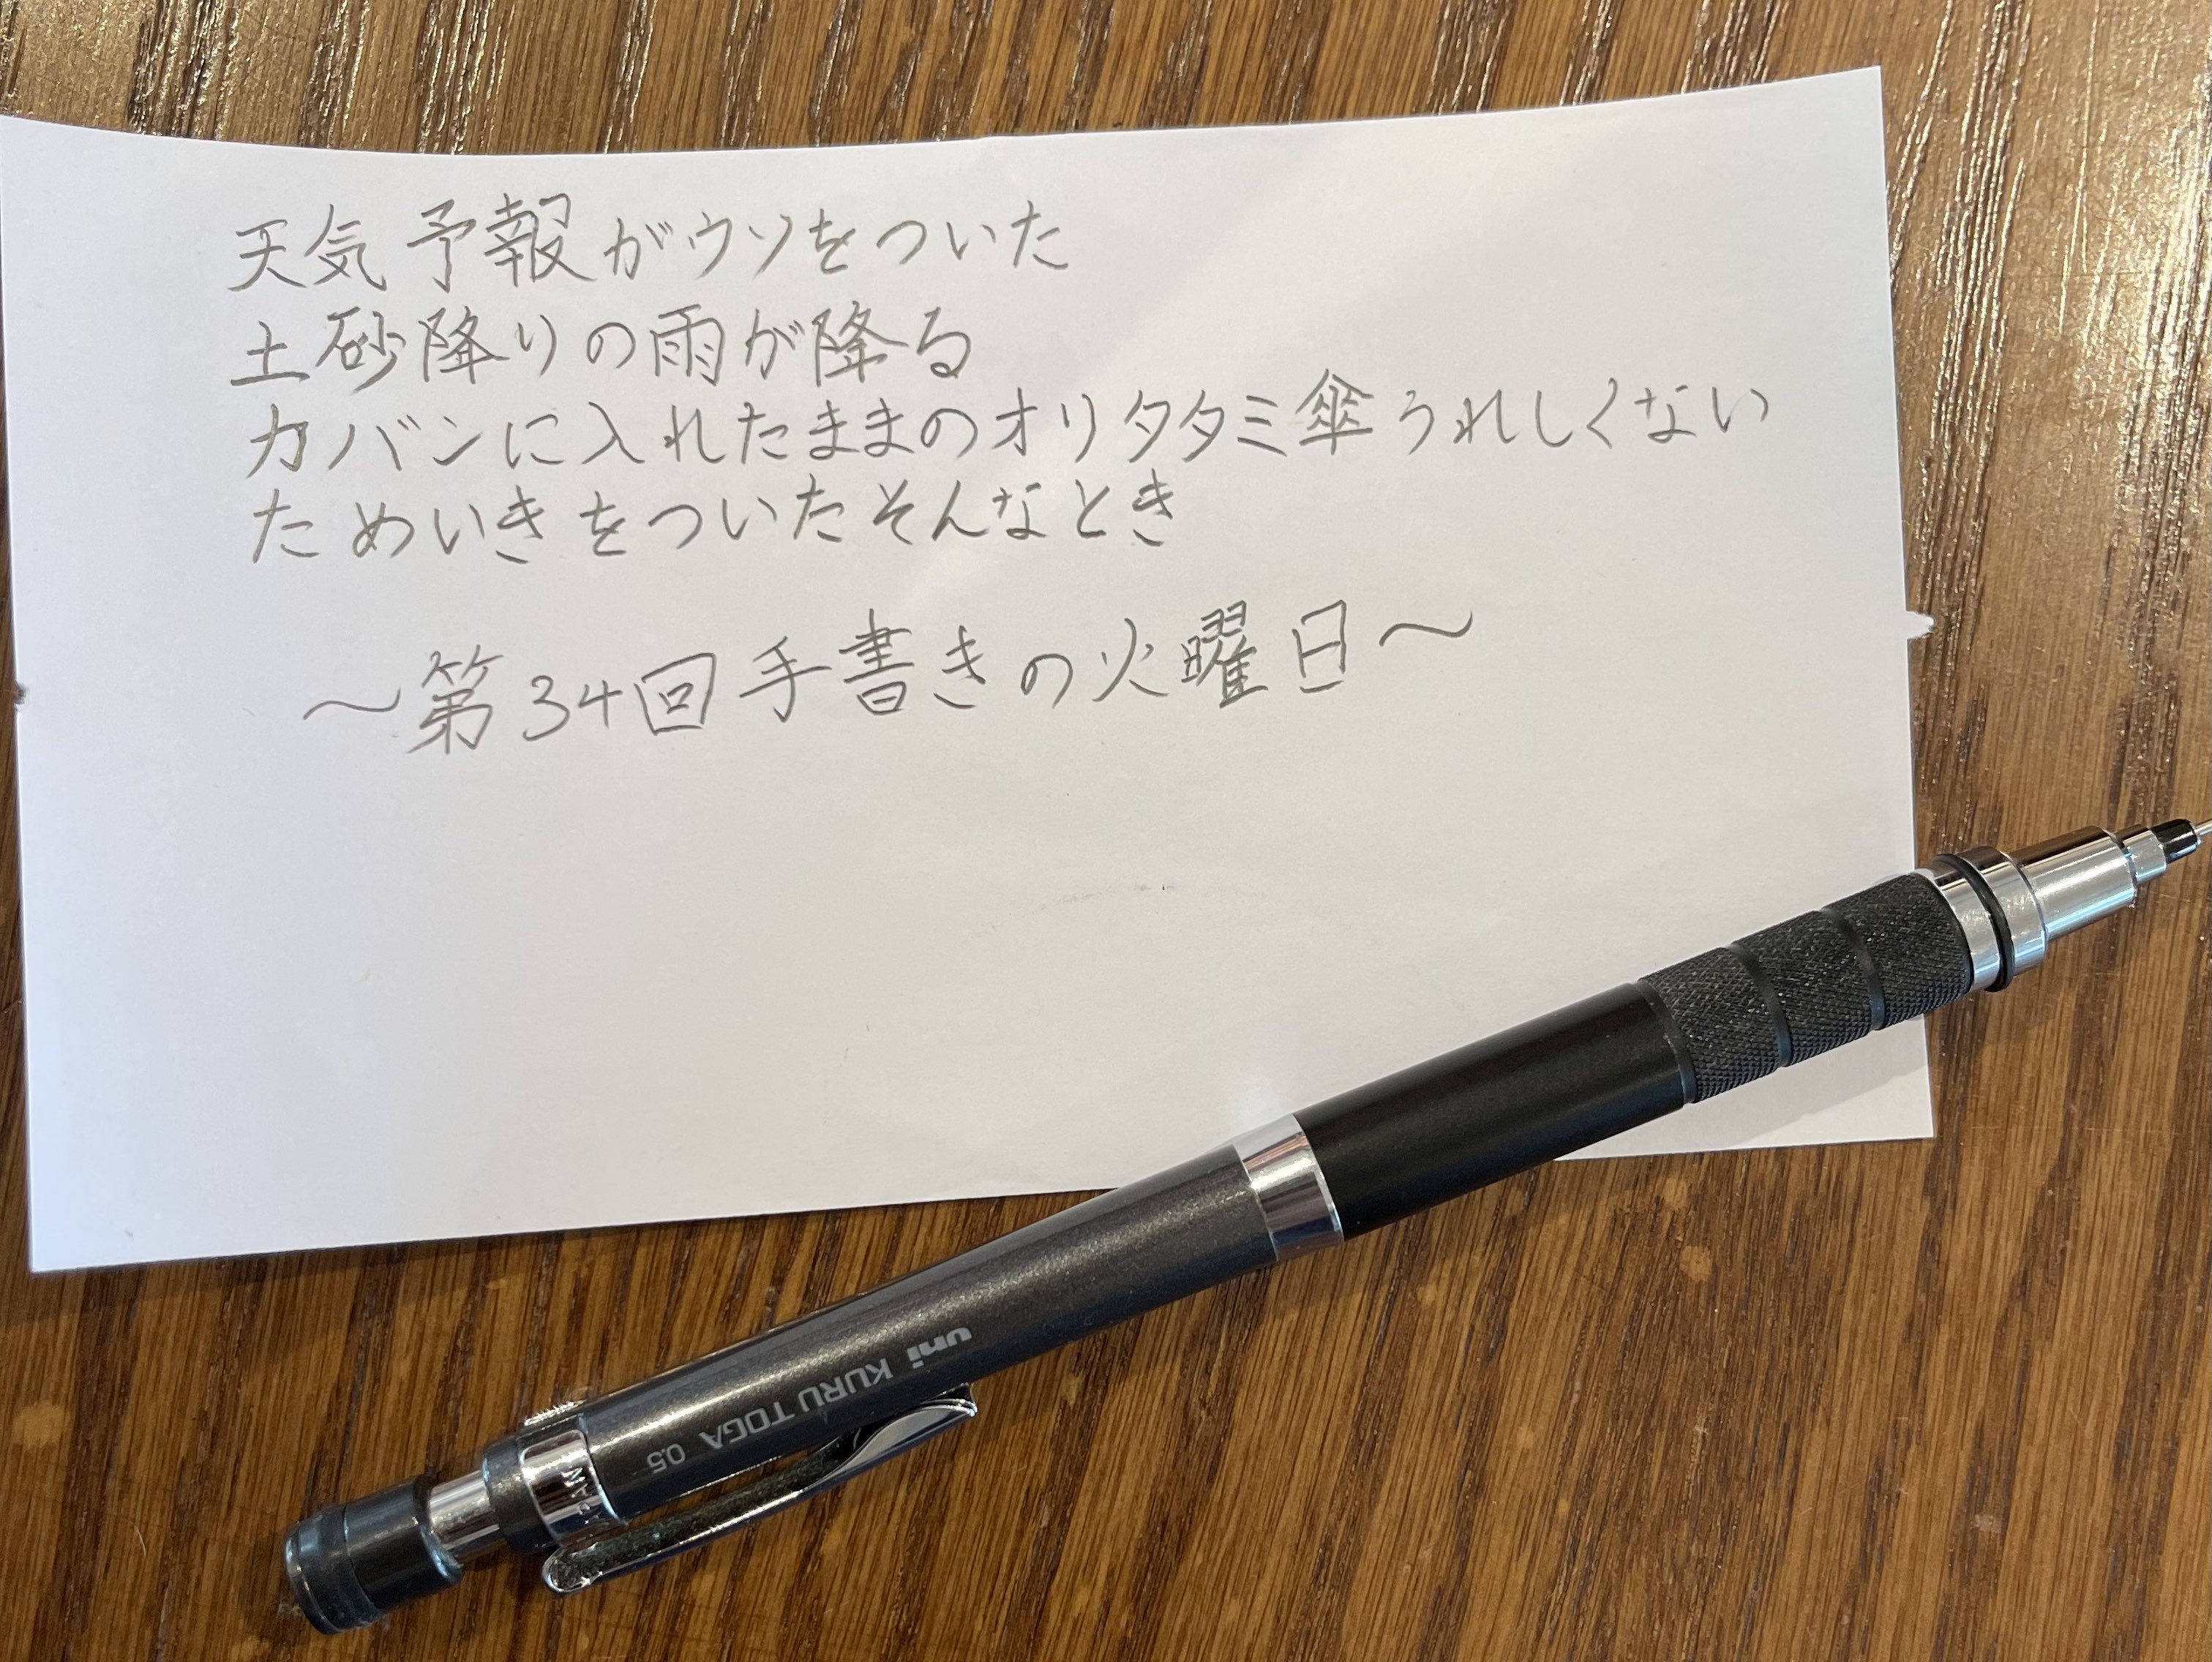 天気予報がウソをついた
土砂降りの雨が降る
カバンに入れたままのオリタタミ傘うれしくない
ためいきをついたそんなとき
～第34回手書きの火曜日～
uni KURU TOGA 0.5